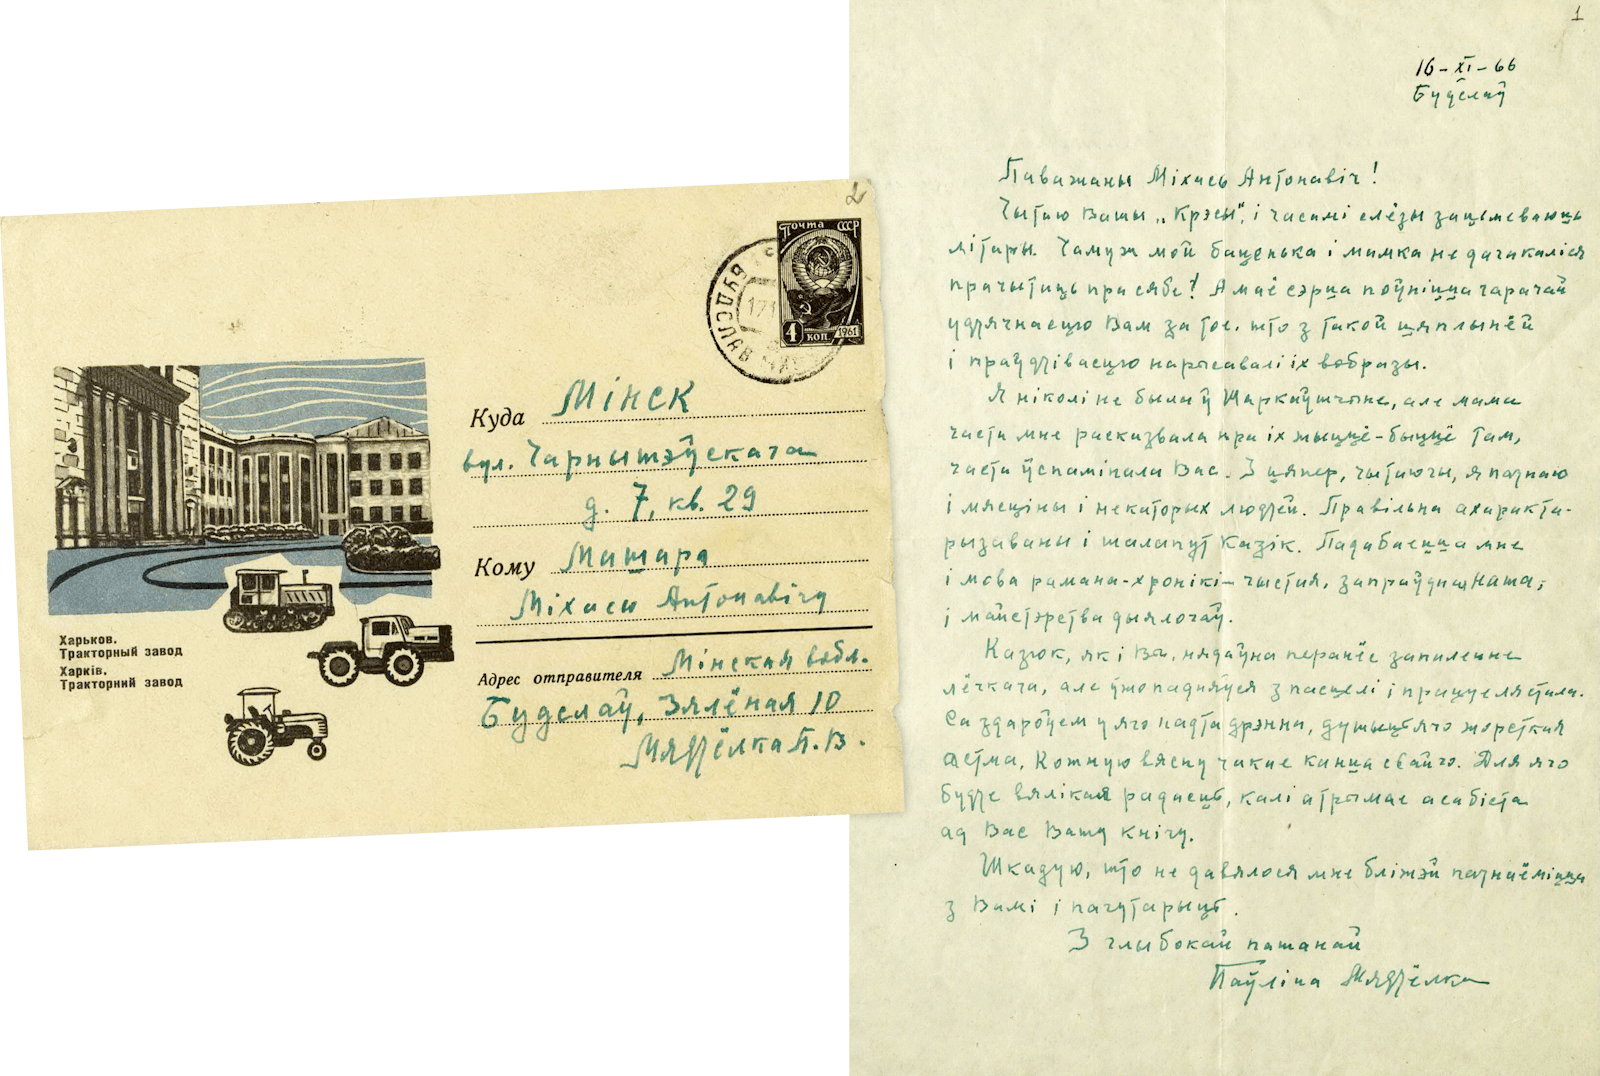 2
Почта СССР
4 коп. 1961
БУДСЛАВ
Куда Мінск
вул. Чарнышэўскага
д. 7, кв. 29
Кому Машара
Міхасю Антонавічу
Адрес отправителя Мінская вобл.
Будслаў, Зялёная 10
Мядзёлка П. В.
Харьков.
Тракторный завод
Харків.
Тракторний завод
1
16-XI-66
Будслаў
Паважаны Міхась Антонавіч!
Чытаю Вашы „Крэсы", і часамі слёзы зацьмеваюць
літары. Чаму ж мой баценька і мамка не дачакаліся
прачытаць пра сябе! А маё сэрца поўніцца гарачай
удзячнасцю Вам за тое, што з такой цяплынёй
і праўдзівасцю нарысавалі іх вобразы.
Я ніколі не была ў Шаркаўшчыне, але мама
часта мне расказвала пра іх жыццё-быццё там,
часта ўспамінала Вас. І цяпер, чытаючы, я пазнаю
і мясціны і некаторых людзей. Правільна ахаракта-
рызаваны і шалапут Казік. Падабаецца мне
і мова рамана-хронікі – чыстая, запраўдная наша,
і майстэрства дыялогаў.
Казюк, як і Вы, нядаўна перанёс запаленне
лёгкага, але ўжо падняўся з пасцелі і працуе ля стала.
Са здароўем у яго надта дрэнна, душыць яго жорсткая
астма, Кожную вясну чакае канца свайго. Для яго
будзе вялікая радасць, калі атрымае асабіста
ад Вас Вашу кнігу.
Шкадую, што не давялося мне бліжэй пазнаёміцца
з Вамі і пагутарыць.
З глыбокай пашанай
Паўліна Мядзёлка